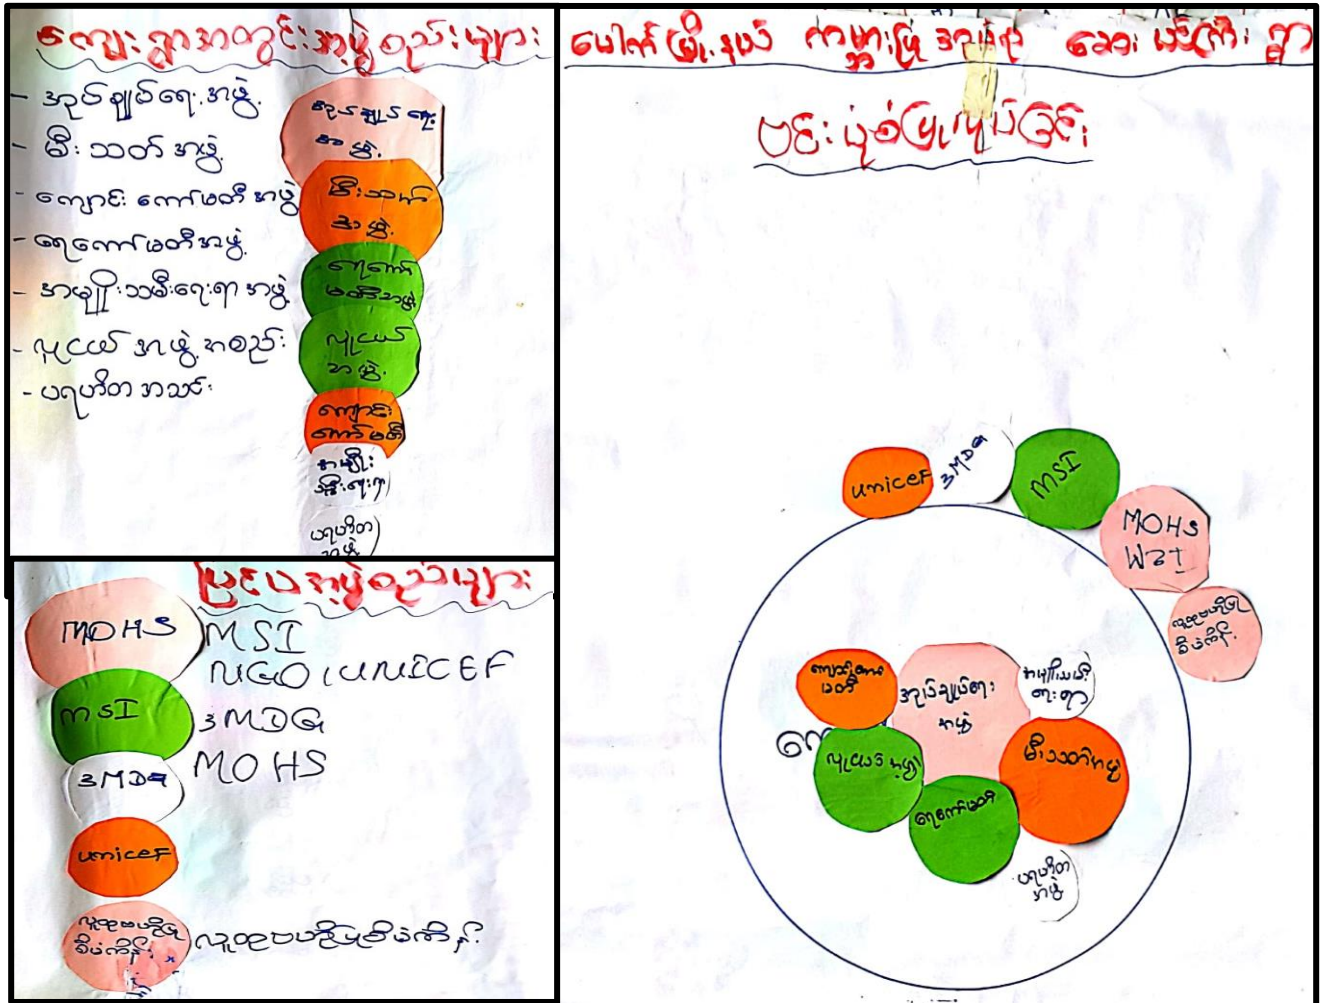 ကျေးရွာအတွင်းအဖွဲ့စည်းများ
- အုပ်ချုပ်ရေးအဖွဲ့
- မီးသတ်အဖွဲ့
- ကျောင်းကော်မတီအဖွဲ့
- ရေကော်မတီအဖွဲ့
- အမျိုးသမီးရေးရာအဖွဲ့
- လူငယ်အဖွဲ့အစည်း
- ပရဟိတအသင်း
အုပ်ချုပ်ရေး
အဖွဲ့
မီးသတ်
အဖွဲ့
ရေကော်
မတီအဖွဲ့
လူငယ်
အဖွဲ့
ကျောင်း
ကော်မတီ
အမျိုး
သမီးရေးရာ
ပရဟိတ
အဖွဲ့
ပြင်ပအဖွဲ့စည်းများ
MOHS
MSI
3MDG
unicef
လူထုဗဟိုပြု
စီမံကိန်း
MSI
NGO, UNICEF
3MDG
MOHS
လူထုဗဟိုပြုစီမံကိန်း
ပေါက်မြို့နယ် ကမ္ဘာ့ဖြူ အုပ်စု ဆေးမင်ကြီး ရွာ
ဗင်းပုံစံပြုလုပ်ခြင်း
unicef
3MDG
MSI
MOHS
လူထုဗဟိုပြု
စီမံကိန်း
ကျောင်းကော်
မတီ
အုပ်ချုပ်ရေး
အဖွဲ့
အမျိုးသမီး
ရေးရာ
လူငယ်အဖွဲ့
ရေကော်မတီ
မီးသတ်အဖွဲ့
ပရဟိတ
အဖွဲ့